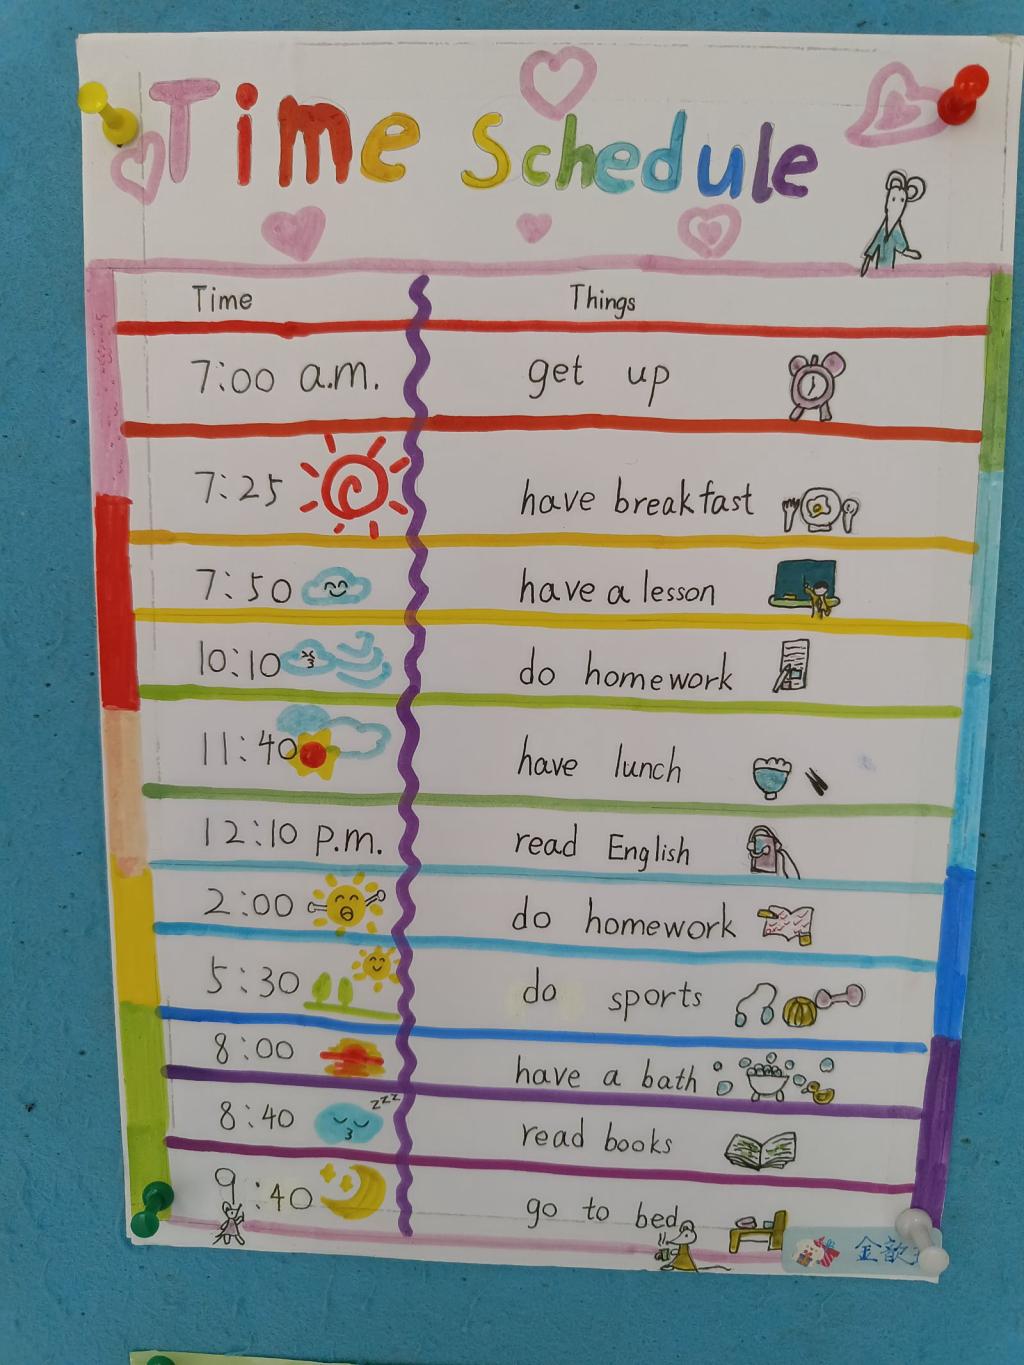 Time Schedule
Time Things
7:00 a.m. get up
7:25 have breakfast
7:50 have a lesson
10:10 do homework
11:40 have lunch
12:10 p.m. read English
2:00 do homework
5:30 do sports
8:00 have a bath
8:40 zzz read books
9:40 go to bed
金歆